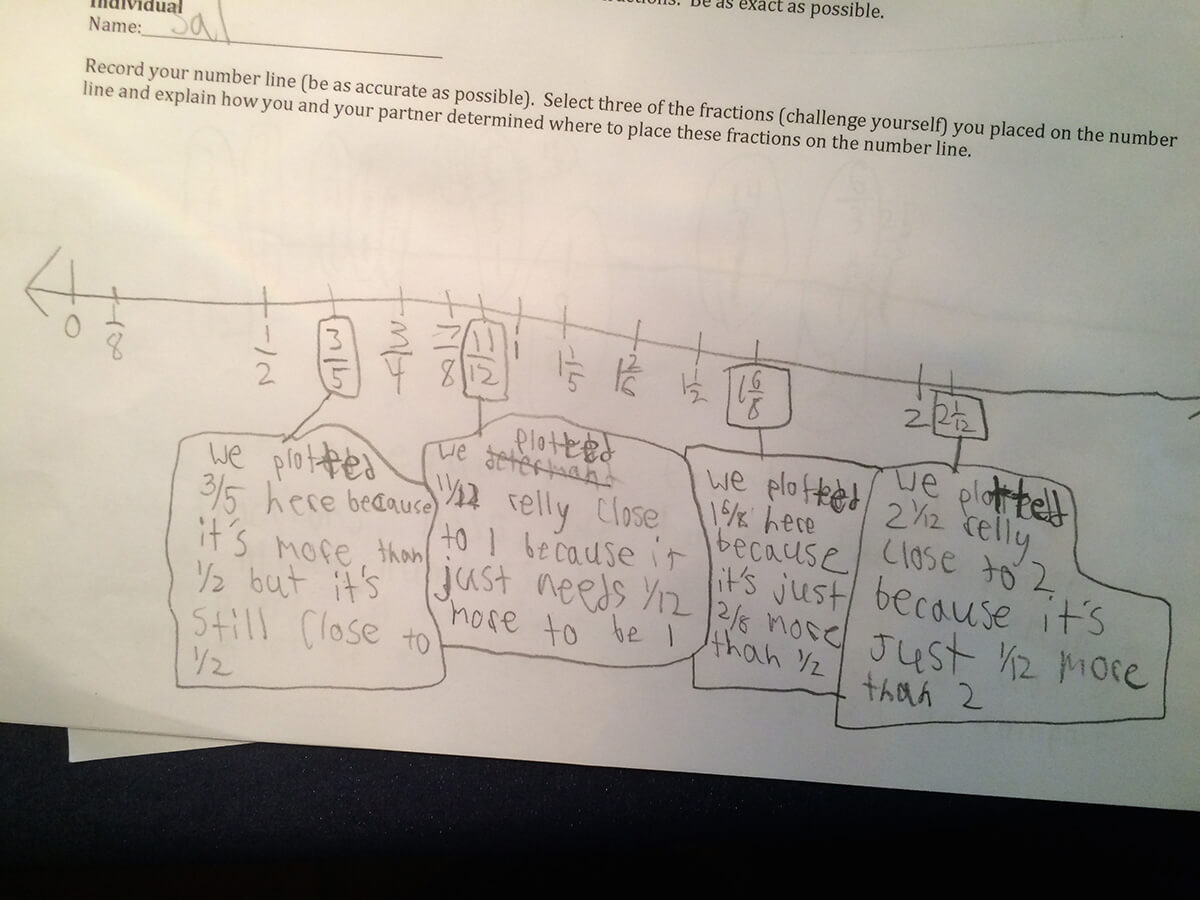 Individual
Be as exact as possible.
Name: Sal
Record your number line (be as accurate as possible). Select three of the fractions (challenge yourself) you placed on the number
line and explain how you and your partner determined where to place these fractions on the number line.
0 1/8 1/2 3/5 3/4 7/8 11/12 1 1 1/5 1 2/6 1 1/2 1 6/8 2 2 1/12
We plotted
3/5 here because
it's more than
1/2 but it's
still close to
1/2
We plotted
11/12 relly close
to 1 because it
just needs 1/12
more to be 1
We plotted
1 6/8 here
because
it's just
2/8 more
than 1/2
We plotted
2 1/12 relly
close to 2
because it's
Just 1/12 more
than 2